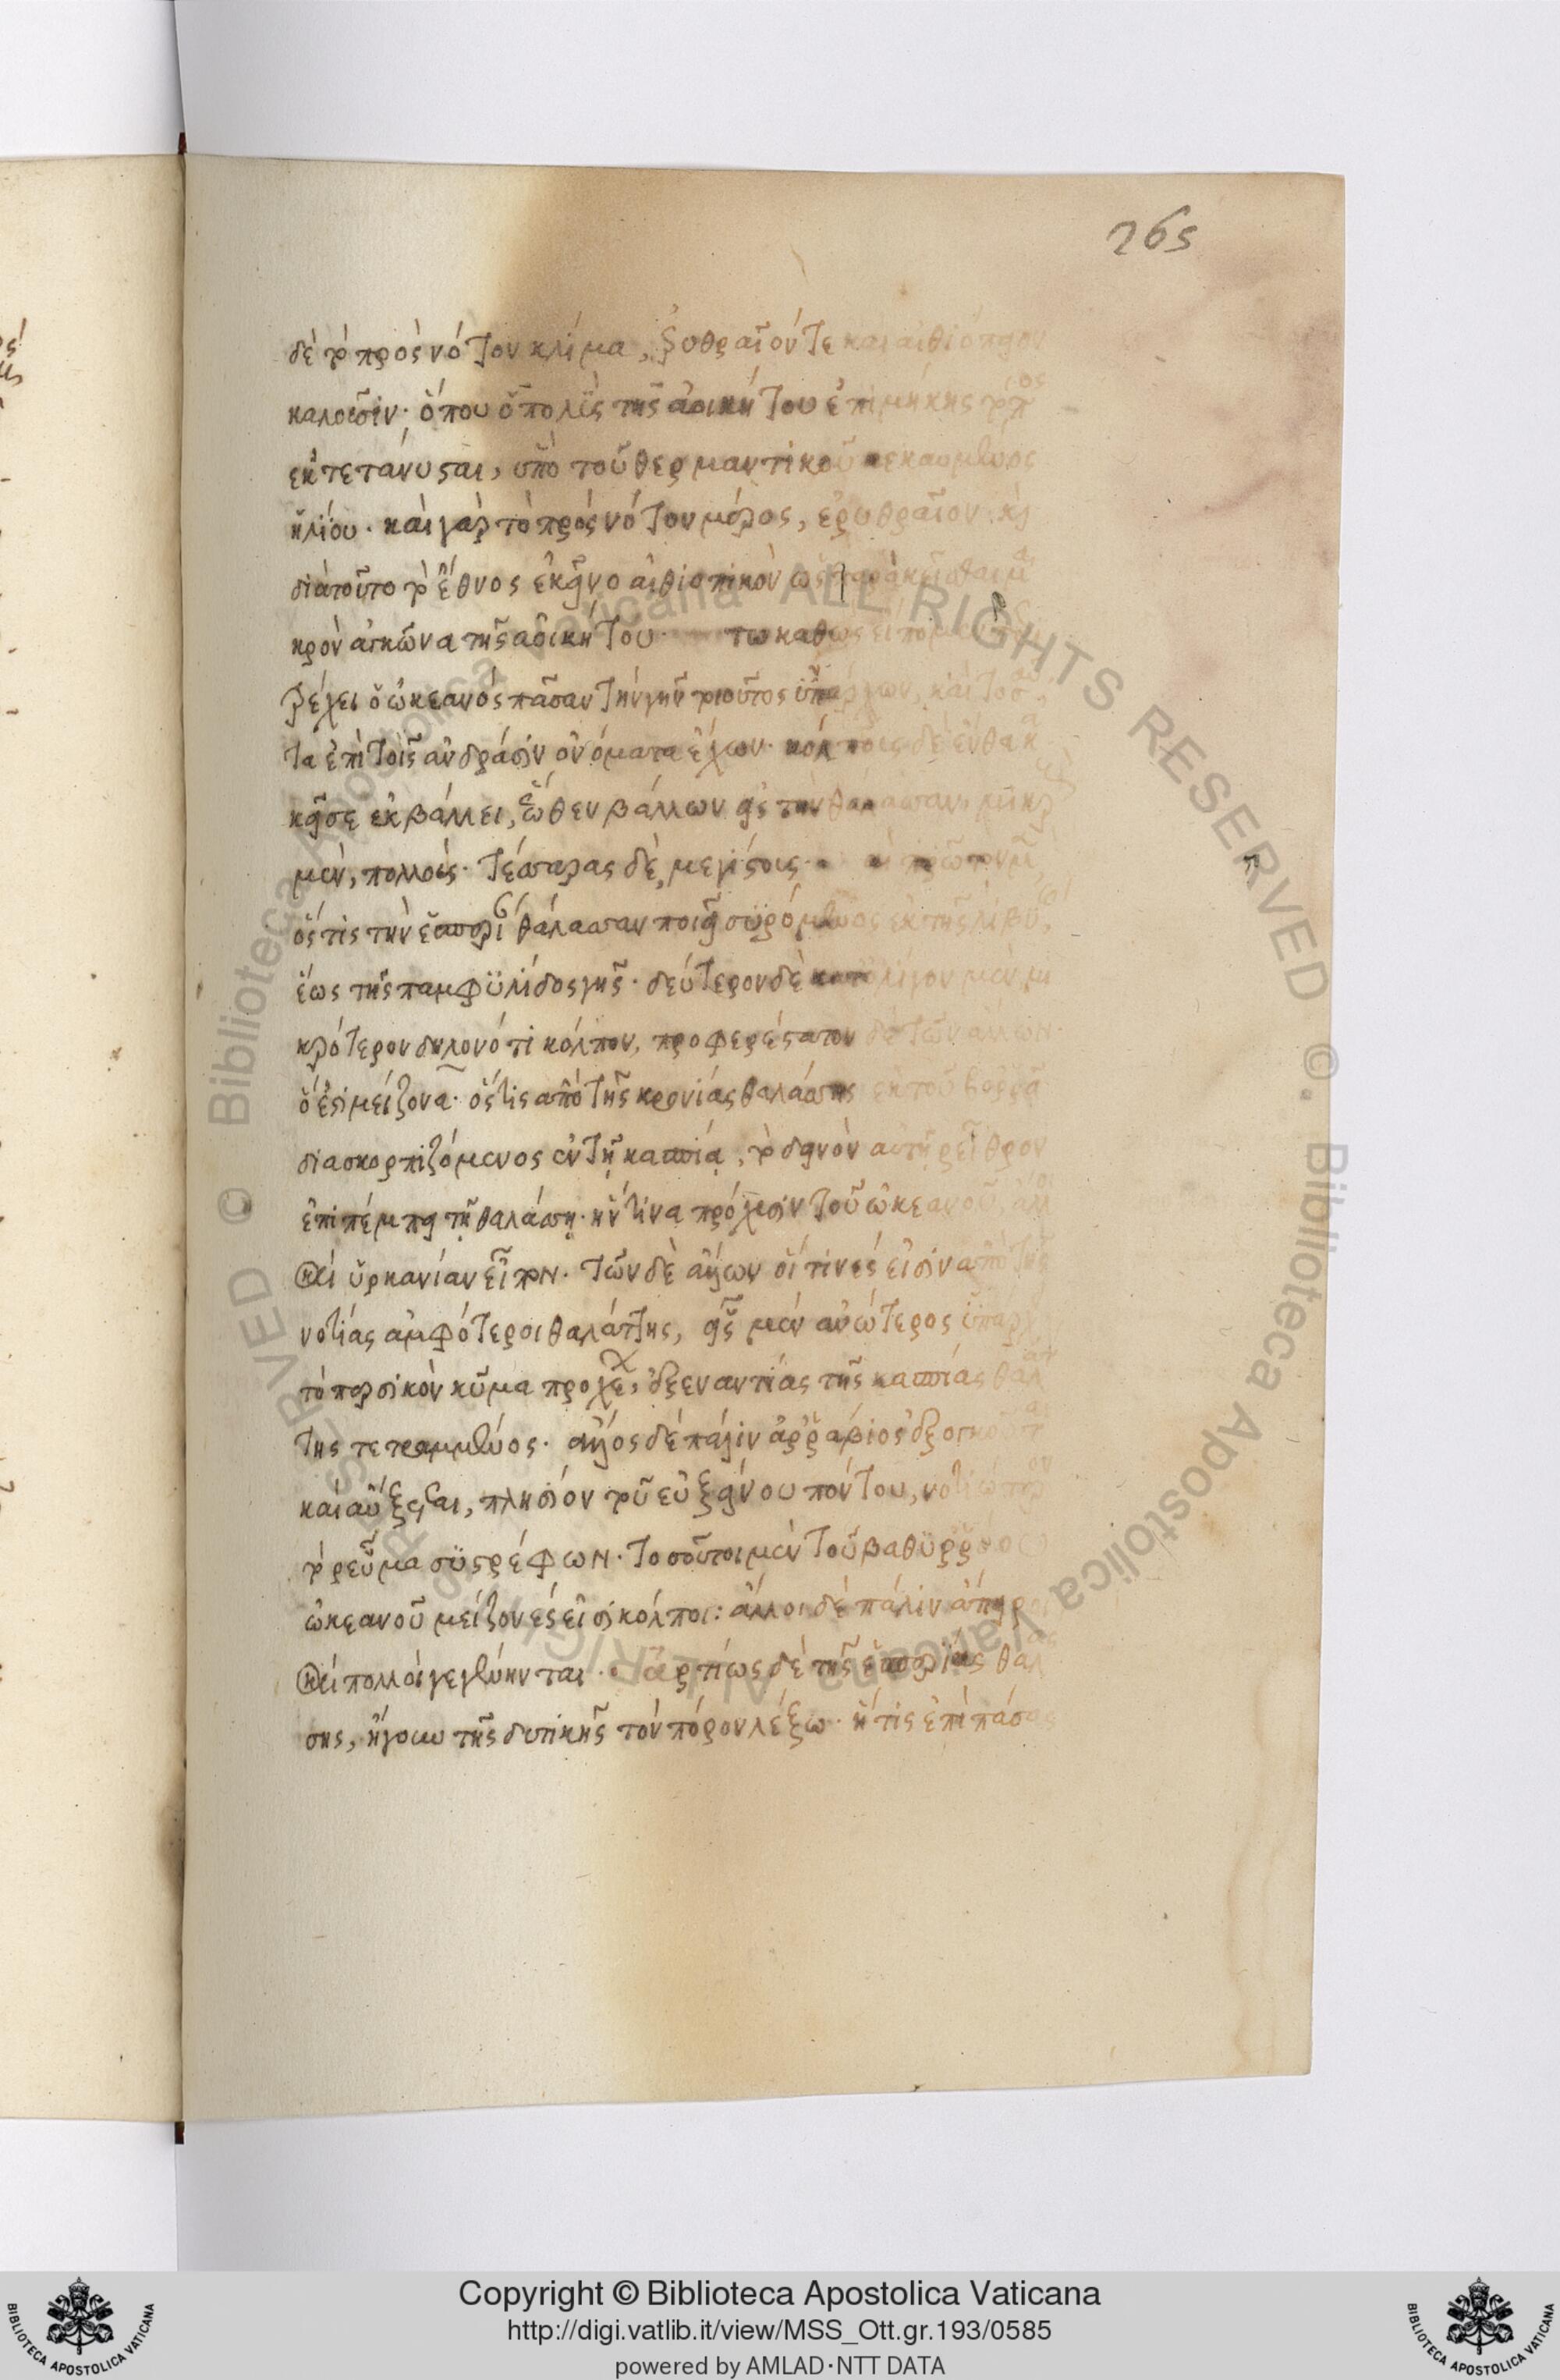 265
δὲ τὸ πρὸς νότον κλίμα, ἐρυθραῖόν τε καὶ αἰθιόπειον
καλοῦσιν· ὅπου ὁ πολὺς τῆς ἀοικήτου ἐπιμήκης τόπος
ἐκτετάνυσται, ὑπὸ τοῦ θερμαντικοῦ κεκαυμένος
ἡλίου· καὶ γὰρ τὸ πρὸς νότον μέρος, ἐρυθραῖον· καὶ
διὰ τοῦτο τὸ ἔθνος ἐκεῖνο αἰθιοπικὸν ὡς παρακεῖσθαι μα
κρὸν ἀγκῶνα τῆς ἀοικήτου· τω καθὼς εἴπομεν
τρέχει ὁ ὠκεανὸς πᾶσαν τὴν γῆν τοιοῦτος ὑπάρχων, καὶ τοσαῦ
τα ἐπὶ τοῖς ἀνδράσιν ὀνόματα ἔχων· κόλπους δὲ ἔνθα κα
κεῖσε ἐκβάλλει, ἔξωθεν βάλλων εἰς τὴν θάλασσαν, μικροὺς
μὲν, πολλούς· τέσσαρας δὲ, μεγίστους· πρῶτον μὲν,
ὅστις τὴν ἑσπερίαν θάλασσαν ποιεῖ συρόμενος ἐκ τῆς λιβύης,
ἕως τῆς παμφυλίδος γῆς· δεύτερον δὲ κατ' ὀλίγον μὲν μι
κρότερον δηλονότι κόλπον, προφερέστατον δὲ τῶν ἄλλων·
ὅ ἐστι μείζονα· ὅστις ἀπὸ τῆς κρονίας θαλάσσης ἐκ τοῦ βορρᾶ
διασκορπιζόμενος ἐν τῇ κασπίᾳ, τὸ δεινὸν αὐτῇ ῥεῖθρον
ἐπιπέμπει τῇ θαλάσσῃ· ἥντινα πρόχυσιν τοῦ ὠκεανοῦ, ἄλλοι
καὶ ὑρκανίαν εἶπον· τῶν δὲ ἄλλων οἵτινές εἰσιν ἀπὸ τῆς
νοτίας ἀμφότεροι θαλάττης, εἷς μὲν ἀνώτερος ὑπάρχ
τὸ περσικὸν κῦμα προχέει, ἐξεναντίας τῆς κασπίας θαλάτ
της τετραμμένος· ἄλλος δὲ πάλιν ἀρράβιος ἐξογκοῦται
καὶ αὔξεται, πλησίον τοῦ εὐξείνου πόντου, νοτιώτερον
τὸ ῥεῦμα συστρέφων· τοσοῦτοι μὲν τοῦ βαθυρρόου
ὠκεανοῦ μείζονές εἰσι κόλποι: ἄλλοι δὲ πάλιν ἄπειροι
καὶ πολλοὶ γεγένηνται· ἀρτίως δὲ τῆς ἑσπερίας θαλάσ
σης, ἤγουν τῆς δυτικῆς τὸν πόρον λέξω· ἥτις ἐπὶ πάσας
Copyright © Biblioteca Apostolica Vaticana
http://digi.vatlib.it/view/MSS_Ott.gr.193/0585
powered by AMLAD·NTT DATA